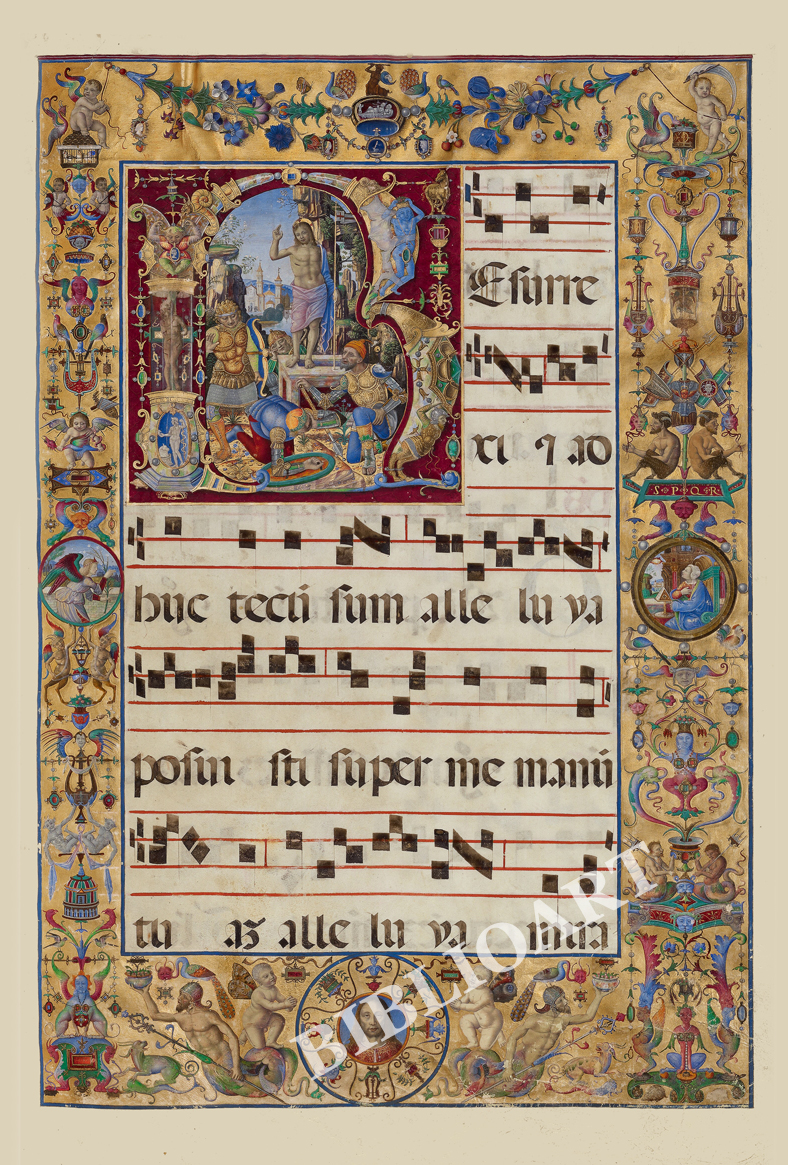 REsurre
xi ꝯ ad
huc tecū sum alle lu ya
posui sti super me manū
tu aꝫ alle lu ya mira
S·P·Q·R
BIBLIOART